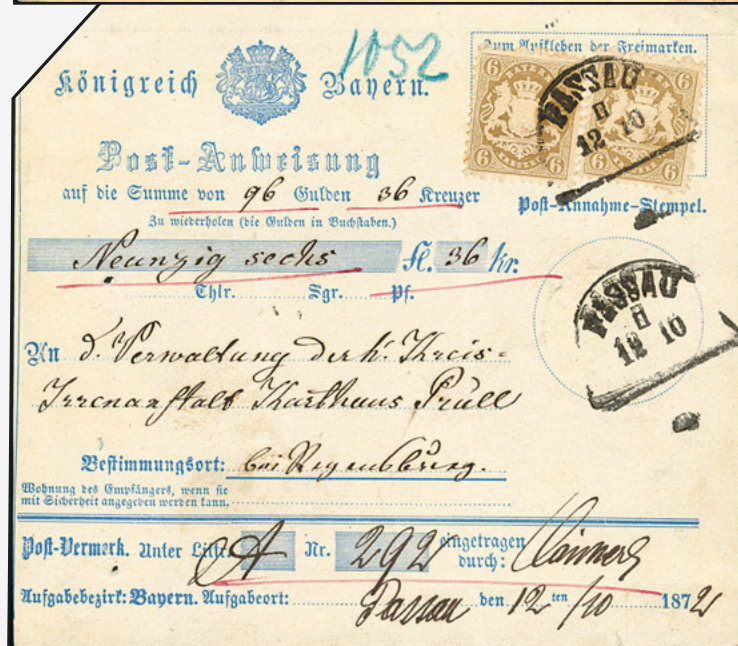 1052
Zum Aufkleben der Freimarken.
Königreich Bayern.
6 BAYERN 6
6 KREUZER 6
6 BAYERN 6
6 KREUZER 6
PASSAU
II
12 10
Post-Anweisung
auf die Summe von 96 Gulden 36 Kreuzer
Zu wiederholen (die Gulden in Buchstaben.)
Post-Annahme-Stempel.
Neunzig sechs Fl. 36 kr.
Thlr. Sgr. Pf.
PASSAU
II
12 10
An d. Verwaltung der k. Kreis-
Irrenanstalt Karthaus Prüll
Bestimmungsort: bei Regensburg.
Wohnung des Empfängers, wenn sie
mit Sicherheit angegeben werden kann.
Post-Vermerk. Unter Littr. A Nr. 292 eingetragen
durch:
Aufgabebezirk: Bayern. Aufgabeort: Passau den 12ten/10 1872